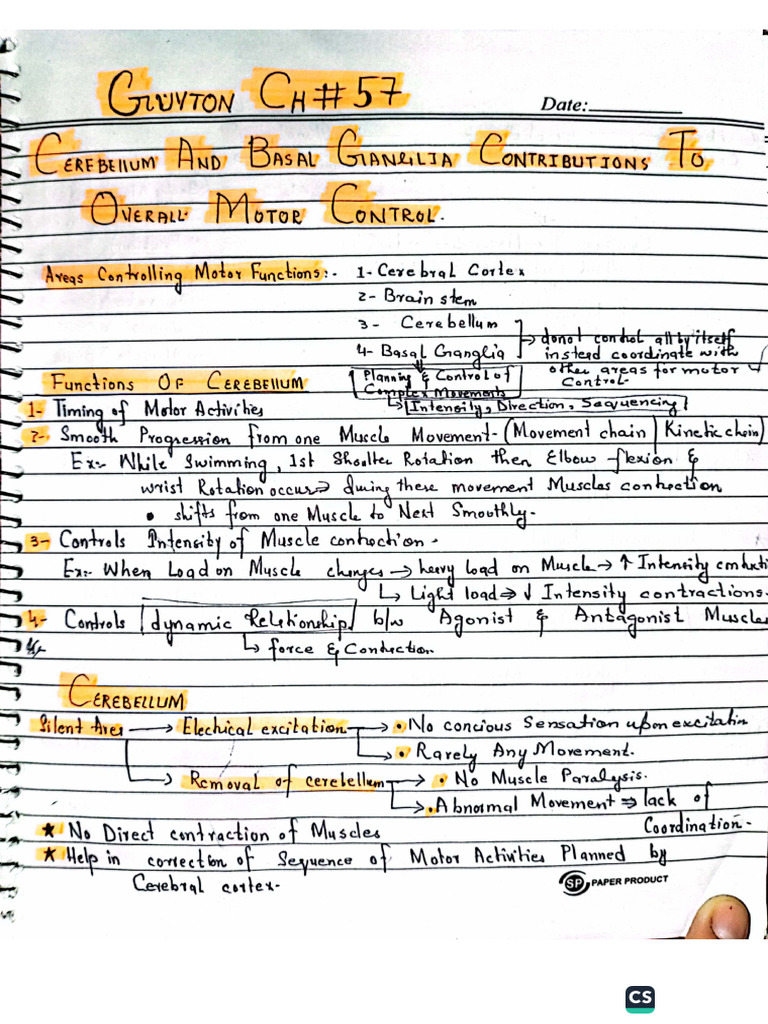 GUYTON CH# 57
Date:
CEREBELLUM AND BASAL GANGLIA CONTRIBUTIONS TO
OVERALL MOTOR CONTROL.
Areas Controlling Motor Functions:- 1- Cerebral Cortex
2- Brain stem
3- Cerebellum
4- Basal Ganglia
→ donot control all by itself
instead coordinate with
other areas for motor
Control-
Planning & Control of
Complex Movements
→ Intensity, Direction, Sequencing
FUNCTIONS OF CEREBELLUM
1- Timing of Motor Activities
2- Smooth Progression from one Muscle Movement- (Movement chain | Kinetic chain)
Ex:- While Swimming, 1st Shoulter Rotation then Elbow flexion &
wrist Rotation occurs → during these movement Muscles contraction
• shifts from one Muscle to Next Smoothly-
3- Controls Intensity of Muscle contraction-
Ex:- When Load on Muscle changes → heavy load on Muscle → ↑ Intensity
↳ Light load → ↓ Intensity contractions-
4- Controls dynamic Relationship b/w Agonist & Antagonist Muscles
↳ force & Contraction
CEREBELLUM
Silent Area → Electrical excitation → • No concious Sensation upon excitation
• Rarely Any Movement.
→ Removal of cerebellum → • No Muscle Paralysis.
• Abnormal Movement ⇒ lack of
Coordination-
★ No Direct contraction of Muscles
★ Help in correction of Sequence of Motor Activities Planned by
Cerebral cortex-
SP PAPER PRODUCT
CS